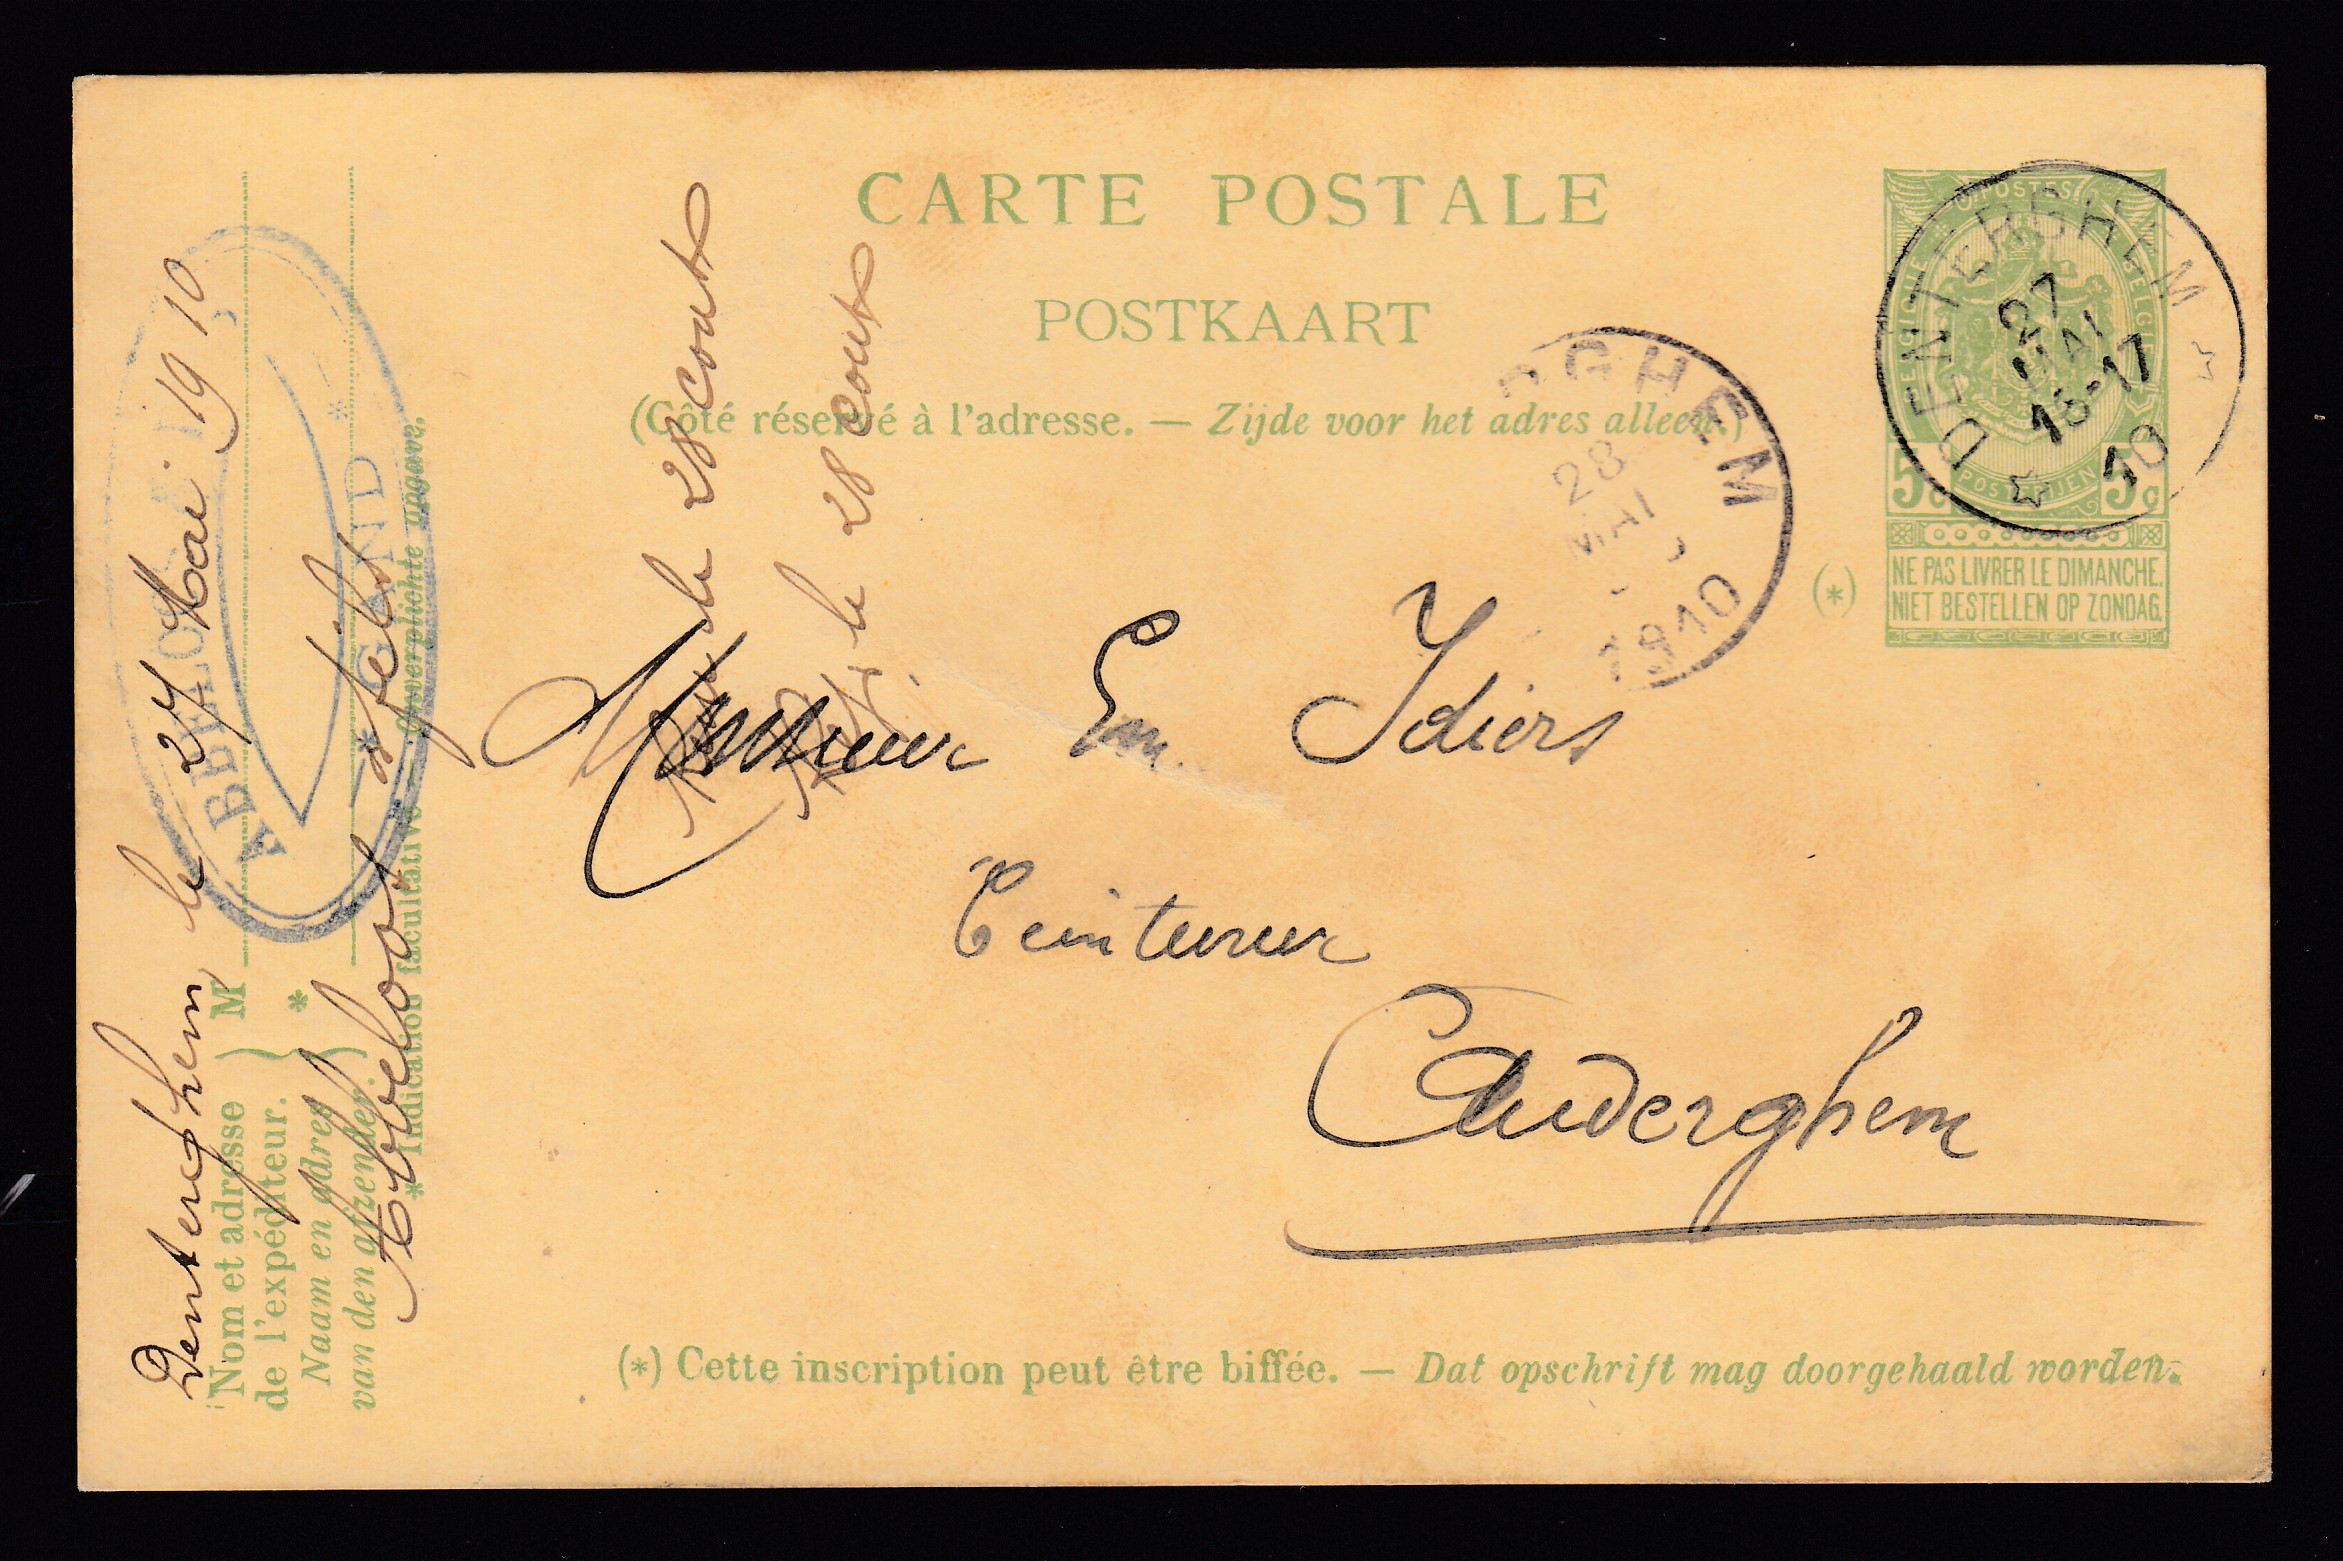 CARTE POSTALE
POSTKAART
(Côté réservé à l'adresse. — Zijde voor het adres alleen.)
POSTES
BELGIQUE
BELGIË
POSTERIJEN
5c 5c
NE PAS LIVRER LE DIMANCHE.
NIET BESTELLEN OP ZONDAG.
(*)
DENTERGHEM
27
MAI
16-17
10
RGHEM
28
MAI
1910
Monsieur Em. Idiers
Teinturier
Auderghem
(*) Cette inscription peut être biffée. — Dat opschrift mag doorgehaald worden.
Denterghem le 27 Mai 1910
Nom et adresse
de l'expéditeur.
Naam en adres
van den afzender.
M
*
* Indication facultative — onverplichte opgave.
* GAND *
le 28 court
le 28 court